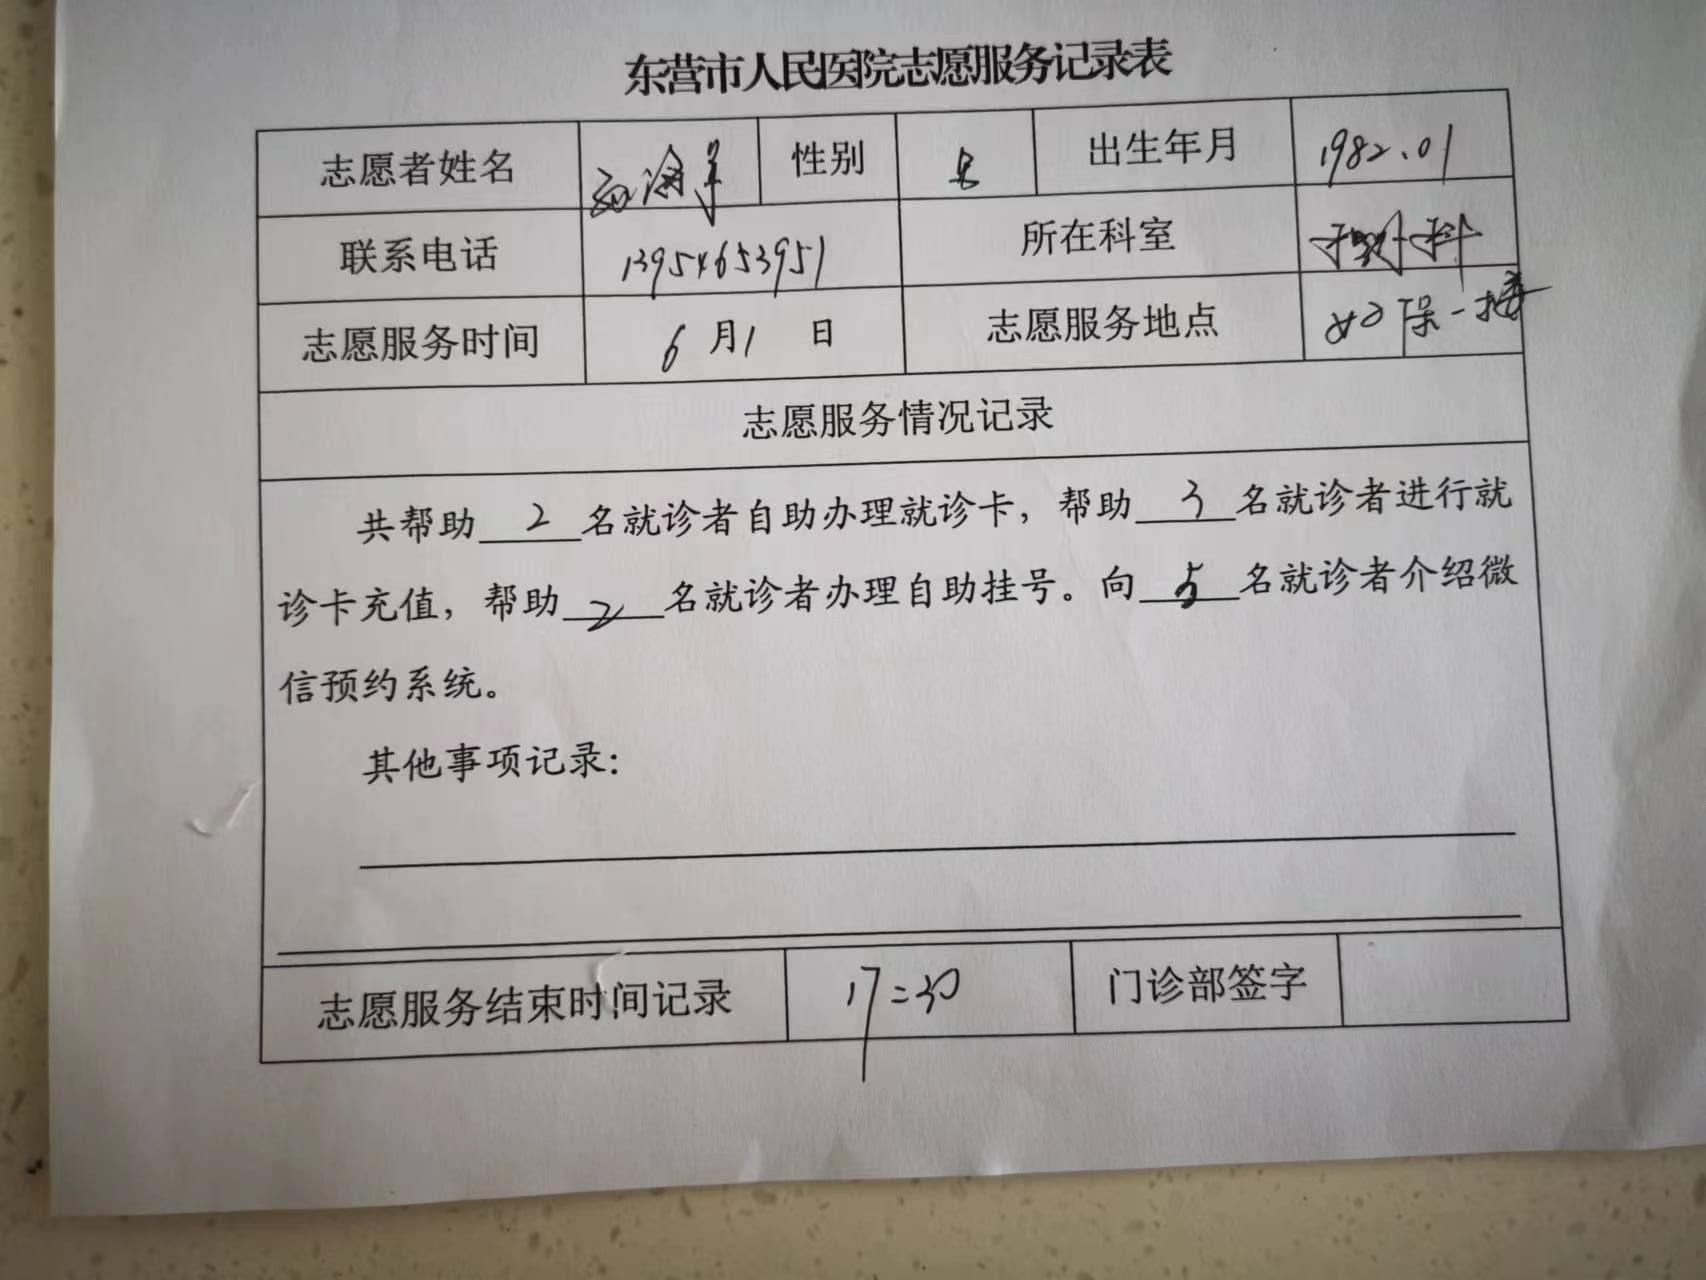 东营市人民医院志愿服务记录表
志愿者姓名 性别 出生年月 1982.01
联系电话 13954653951 所在科室
志愿服务时间 6月1日 志愿服务地点 妇保一楼
志愿服务情况记录
共帮助2名就诊者自助办理就诊卡，帮助3名就诊者进行就
诊卡充值，帮助2名就诊者办理自助挂号。向5名就诊者介绍微
信预约系统。
其他事项记录：
志愿服务结束时间记录 17:30 门诊部签字